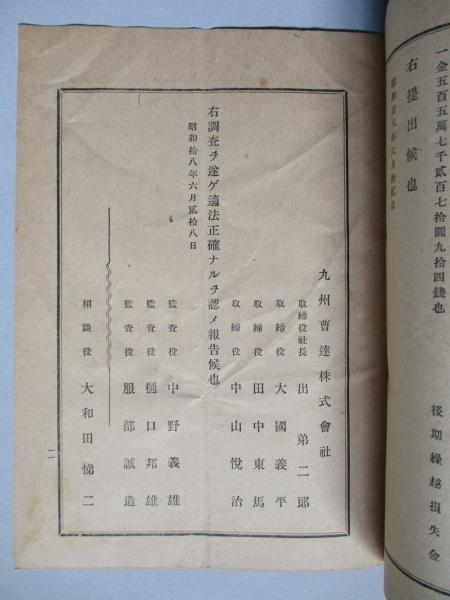 一金五百五萬七千貳百七拾圓九拾四錢也
後期繰越損失金
右提出候也
昭和拾八年六月拾貳日
九州曹達株式會社
取締役社長 出弟二郎
取締役 大國義平
取締役 田中東馬
取締役 中山悅治
右調査ヲ遂ゲ適法正確ナルヲ認メ報告候也
昭和拾八年六月貳拾八日
監査役 中野義雄
監査役 樋口邦雄
監査役 服部誠造
相談役 大和田悌二
二